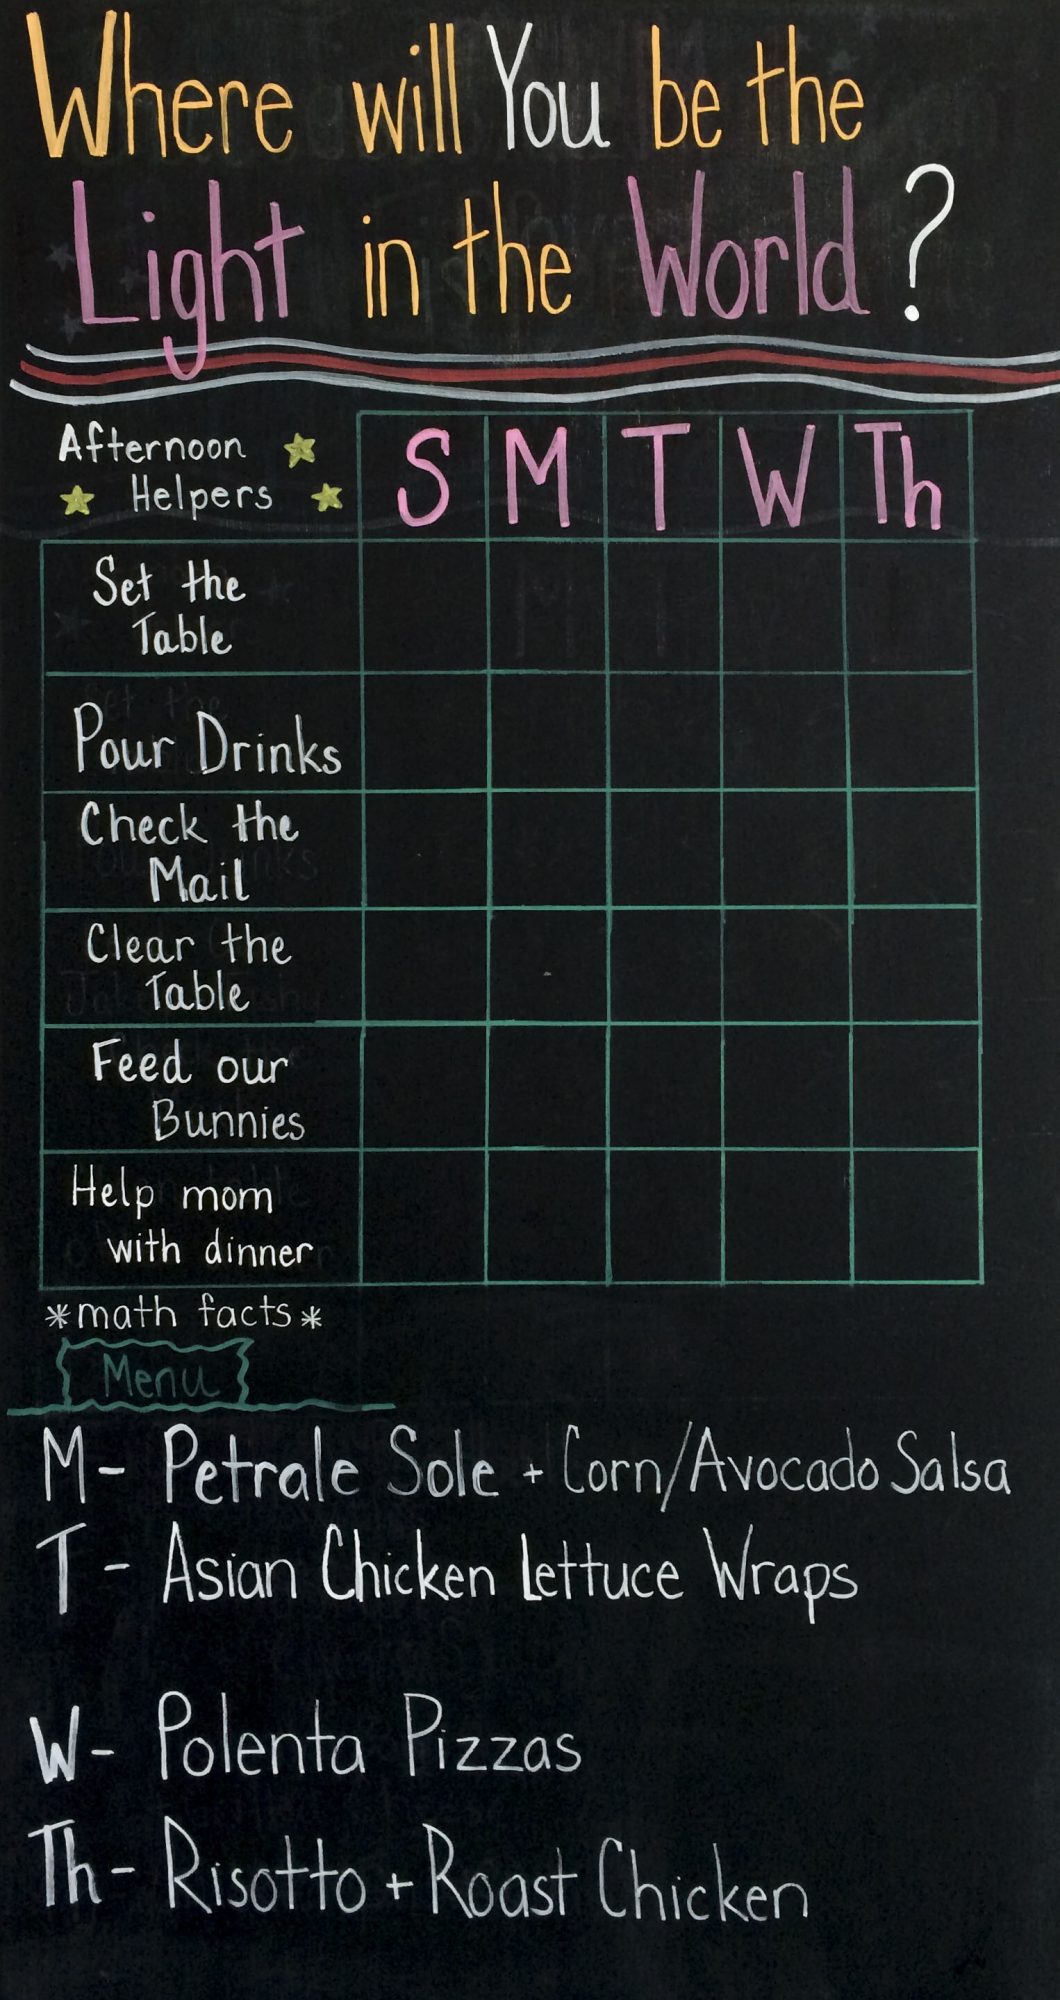 Where will You be the
Light in the World?
Afternoon
Helpers
S M T W Th
Set the
Table
Pour Drinks
Check the
Mail
Clear the
Table
Feed our
Bunnies
Help mom
with dinner
*math facts*
Menu
M- Petrale Sole + Corn/Avocado Salsa
T - Asian Chicken Lettuce Wraps
W- Polenta Pizzas
Th- Risotto + Roast Chicken